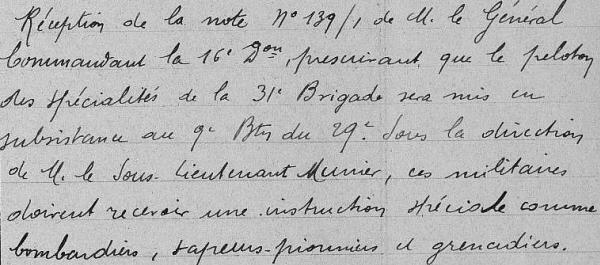 Réception de la note N° 139/1 de M. le Général
Commandant la 16e Don, prescrivant que le peloton
des spécialités de la 31e Brigade sera mis en
subsistance au 9e Btn du 29e. Sous la direction
de M. le Sous-Lieutenant Munier, ces militaires
doivent recevoir une instruction spéciale comme
bombardiers, sapeurs-pionniers et grenadiers.